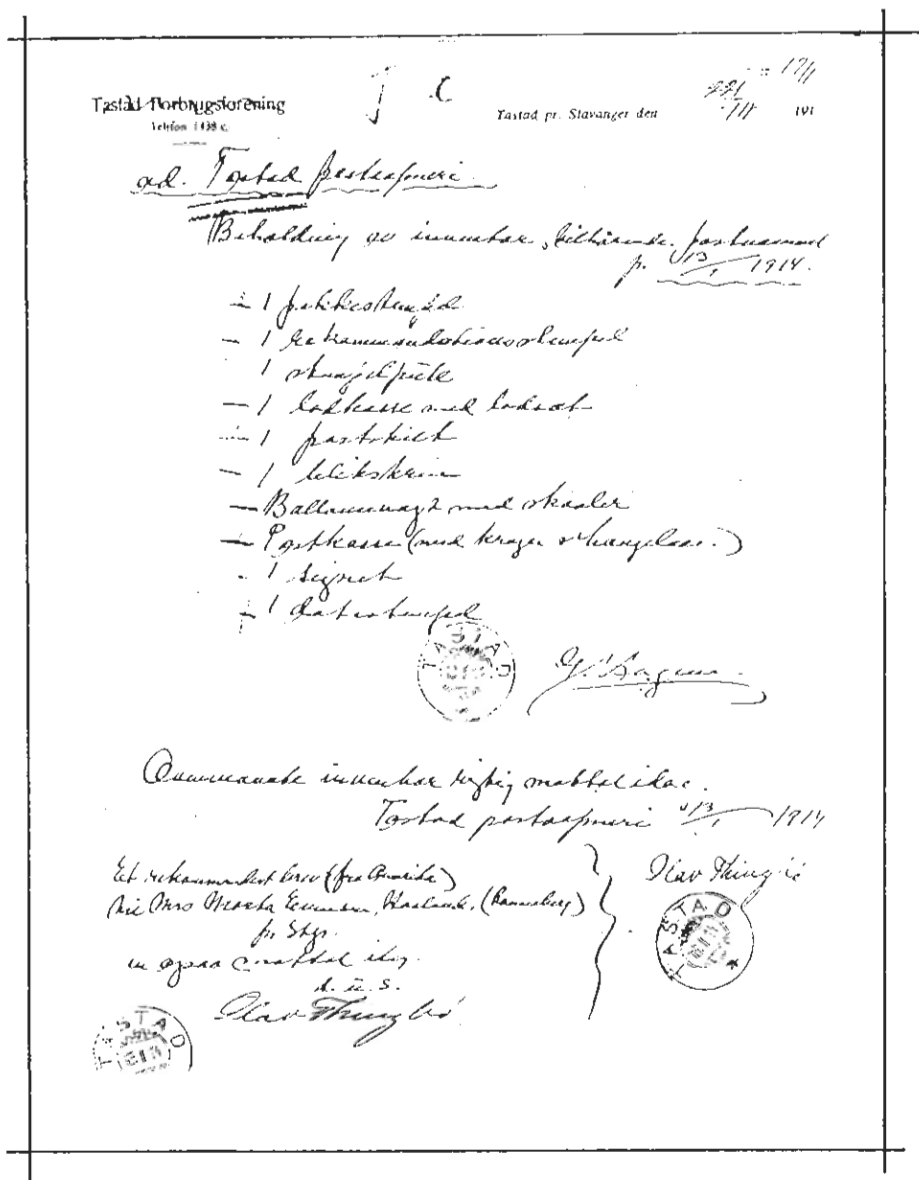 Tastad Forbrugsforening
Telefon 1438 c.
Tastad pr. Stavanger den 191
ad. Tastad postaapneri.
Beholdning av inventar, tilhørende postvæsenet
p. 13/1 1914.
1
1 rekommandationsstempel
1 stempelpute
1 lodkasse med lodsæt
1 postskilt
1 blikskrin
Ballancevagt med skaaler
Postkasse (med kroger o. hængelaas.)
1 signet
1 datostempel
TASTAD
Ovennævnte inventar rigtig mottat idag.
Tastad postaapneri 13/1 1914
Et rekommandert brev (fra Amerika)
til Mrs
pr. Stgr.
er ogsaa mottat idag.
d. u. s.
Olav Thingbø
Olav Thingbø
TASTAD
TASTAD